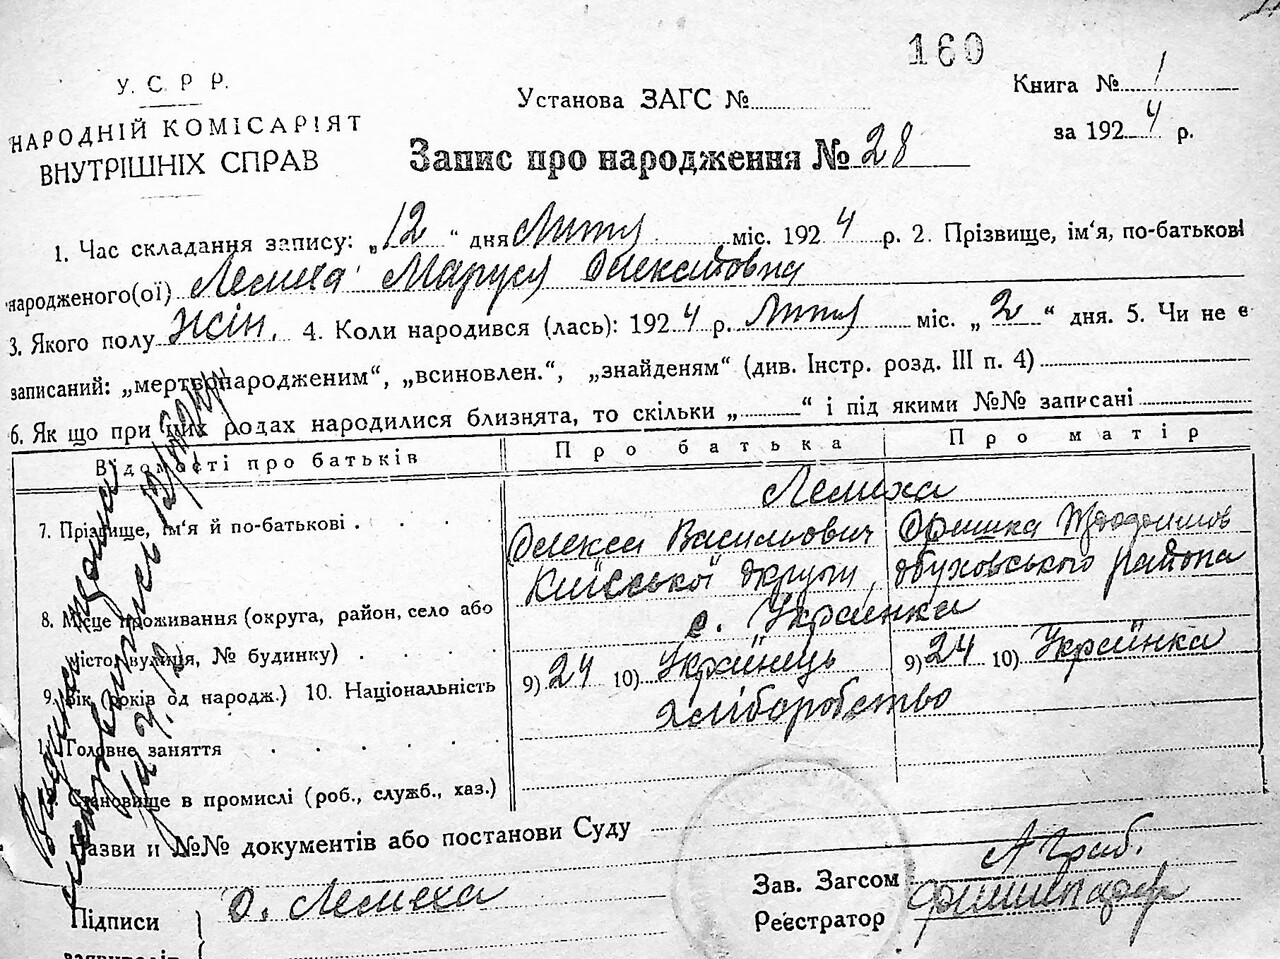 160
У. С. Р Р.
НАРОДНІЙ КОМІСАРІЯТ
ВНУТРІШНІХ СПРАВ
Установа ЗАГС №
Книга № 1
за 1924 р.
Запис про народження № 28
1. Час складання запису: „12“ дня Лютня міс. 1924 р. 2. Прізвище, ім'я, по-батькові
народженого(ої) Лемиха Маруся Олексіовна
3. Якого полу жін. 4. Коли народився (лась): 1924 р. Лютня міс. „2“ дня. 5. Чи не є
записаний: „мертвонародженим“, „всиновлен.“, „знайденям“ (див. Інстр. розд. III п. 4)
6. Як що при цих родах народилися близнята, то скільки „ “ і під якими №№ записані
Відомості про батьків Про батька Про матір
Лемиха
7. Прізвище, ім'я й по-батькові Олекса Васильович Оришка
Київської округи, Обуховського района
8. Місце проживання (округа, район, село або с. Українка
місто, вулиця, № будинку)
9. Вік (років од народж.) 10. Національність 9) 24 10) Українець 9) 24 10) Українка
11. Головне заняття хліборобство
Становище в промислі (роб., служб., хаз.)
Назви и №№ документів або постанови Суду
Зав. Загсом
Підписи О. Лемеха
Реєстратор